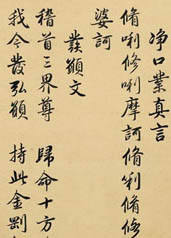 净口業真言
脩唎修唎摩訶脩唎脩修
婆訶
發願文
稽首三界尊 歸命十方
我今發弘願 持此金剛